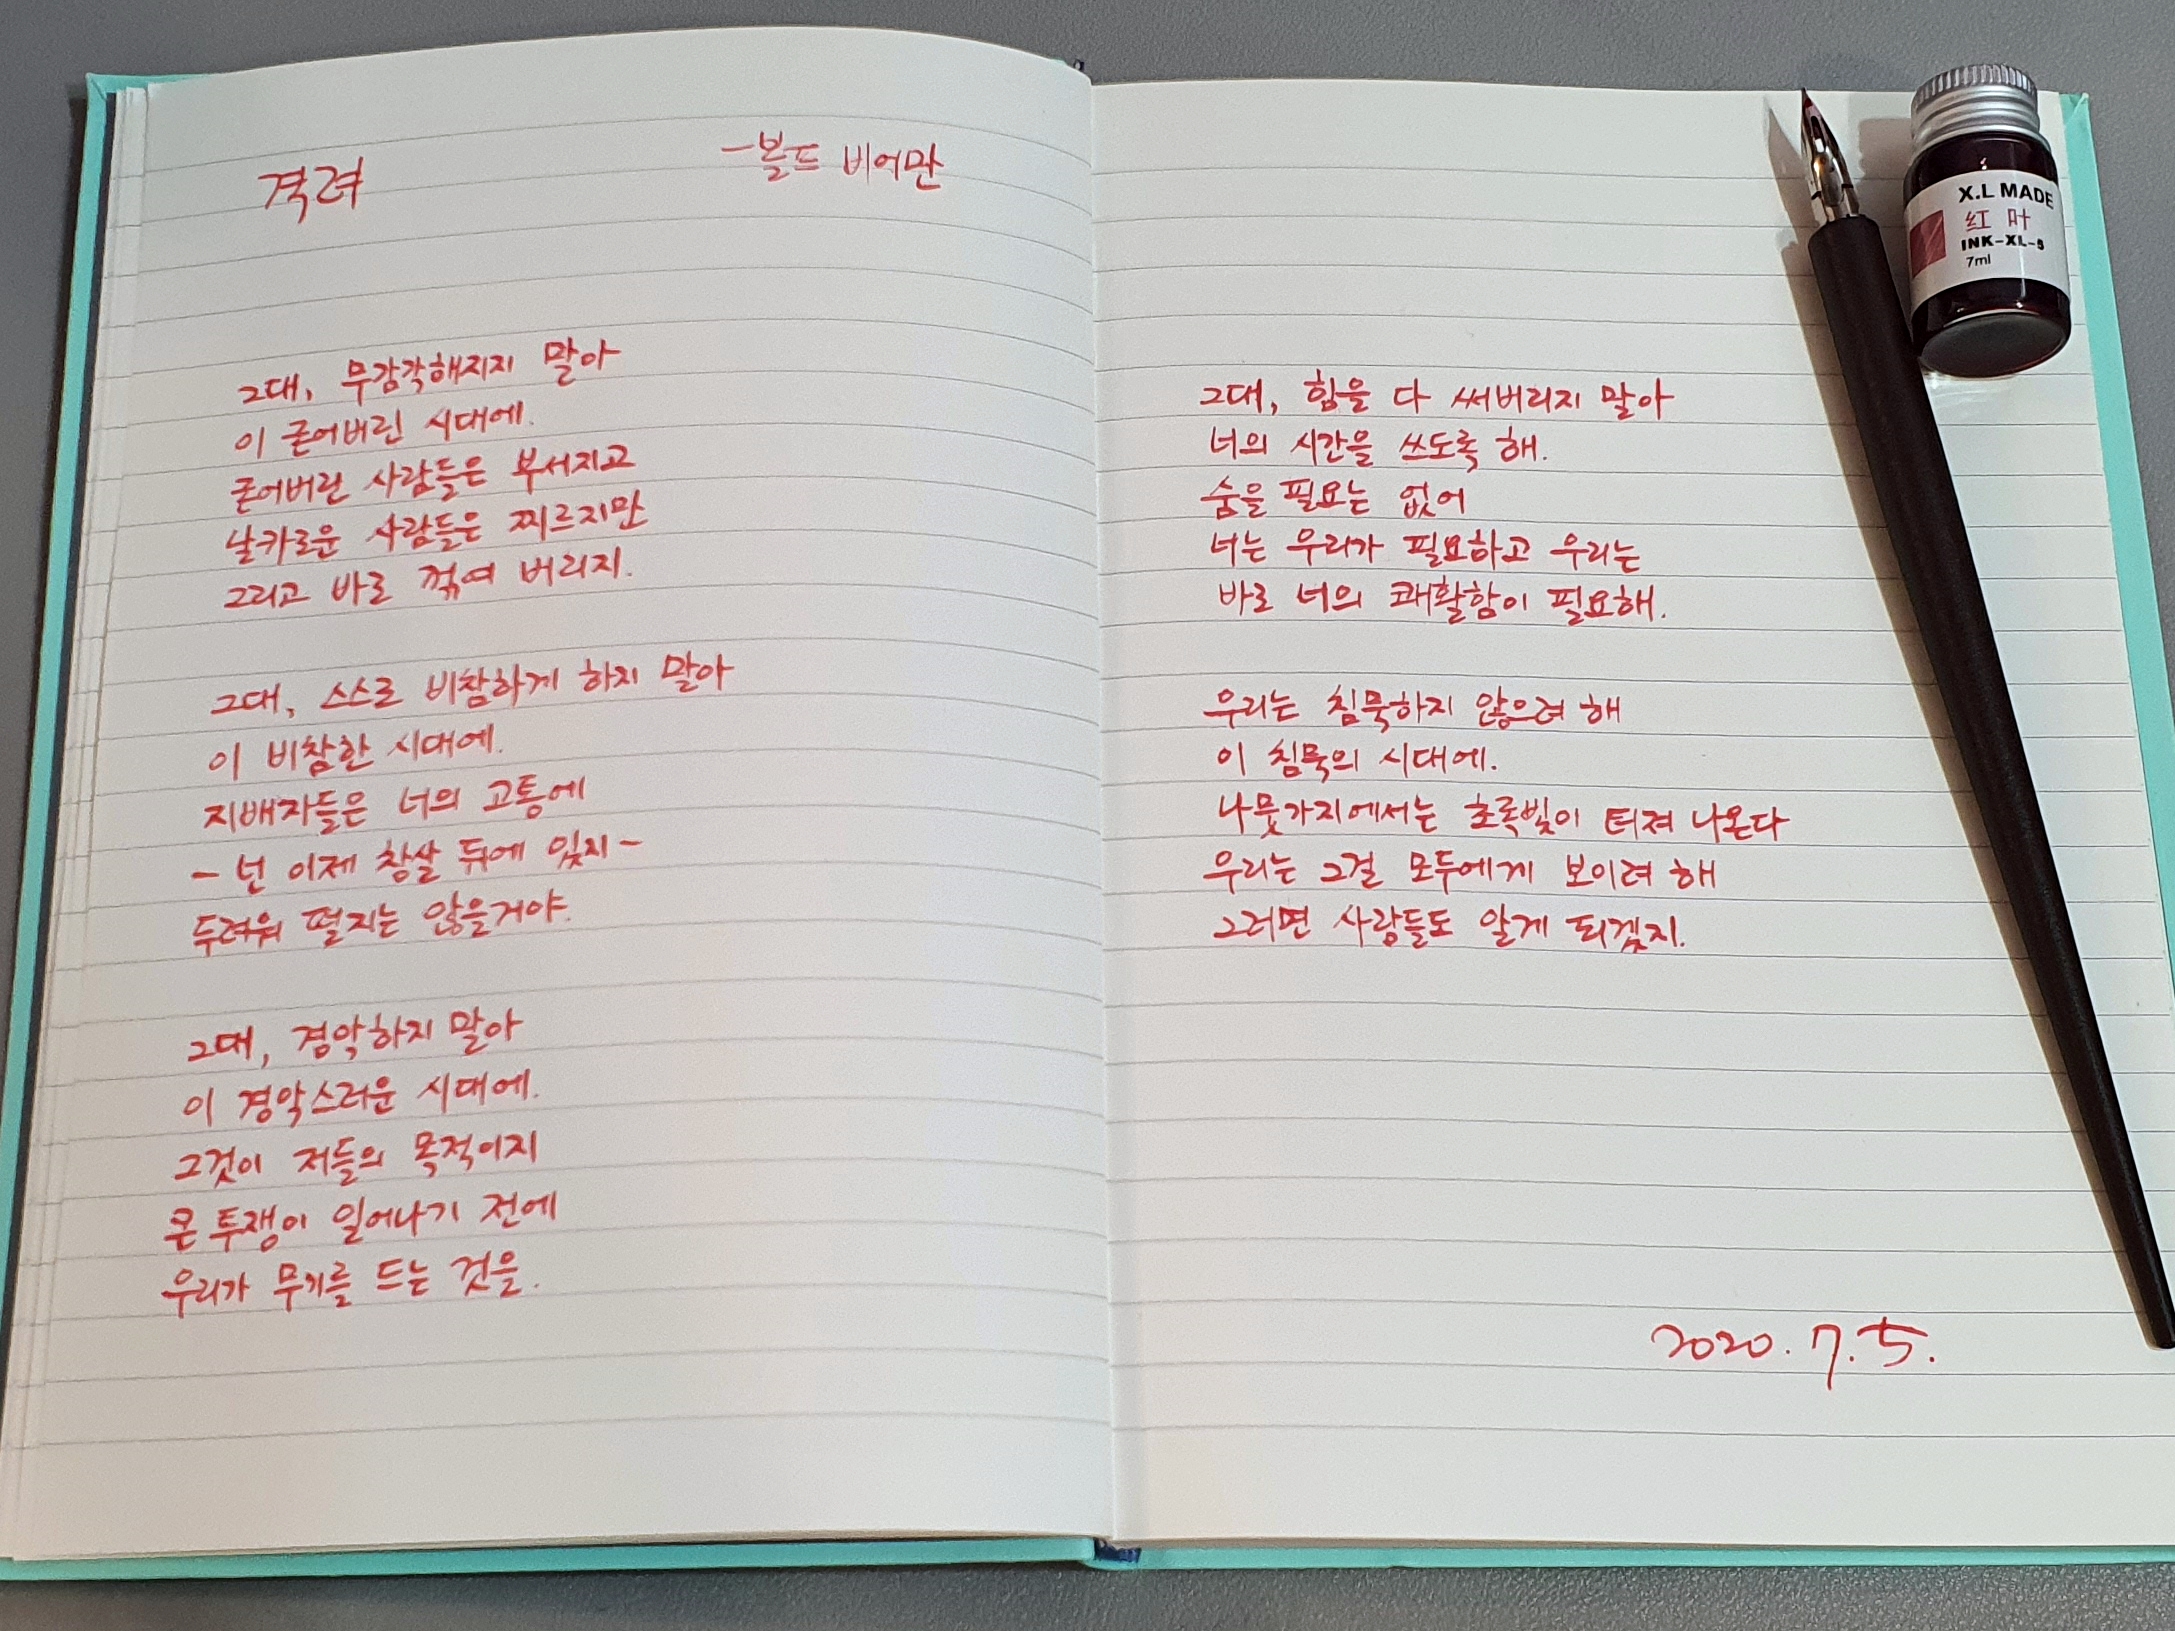 격려
-볼프 비어만
그대, 무감각해지지 말아
이 굳어버린 시대에.
굳어버린 사람들은 부서지고
날카로운 사람들은 찌르지만
그리고 바로 꺾여 버리지.
그대, 스스로 비참하게 하지 말아
이 비참한 시대에.
지배자들은 너의 고통에
- 넌 이제 창살 뒤에 있지 -
두려워 떨지는 않을거야.
그대, 경악하지 말아
이 경악스러운 시대에.
그것이 저들의 목적이지
큰 투쟁이 일어나기 전에
우리가 무기를 드는 것을.
그대, 힘을 다 써버리지 말아
너의 시간을 쓰도록 해.
숨을 필요는 없어
너는 우리가 필요하고 우리는
바로 너의 쾌활함이 필요해.
우리는 침묵하지 않으려 해
이 침묵의 시대에.
나뭇가지에서는 초록빛이 터져 나온다
우리는 그걸 모두에게 보이려 해
그러면 사람들도 알게 되겠지.
2020. 7. 5.
X.L MADE
红 叶
INK-XL-5
7ml